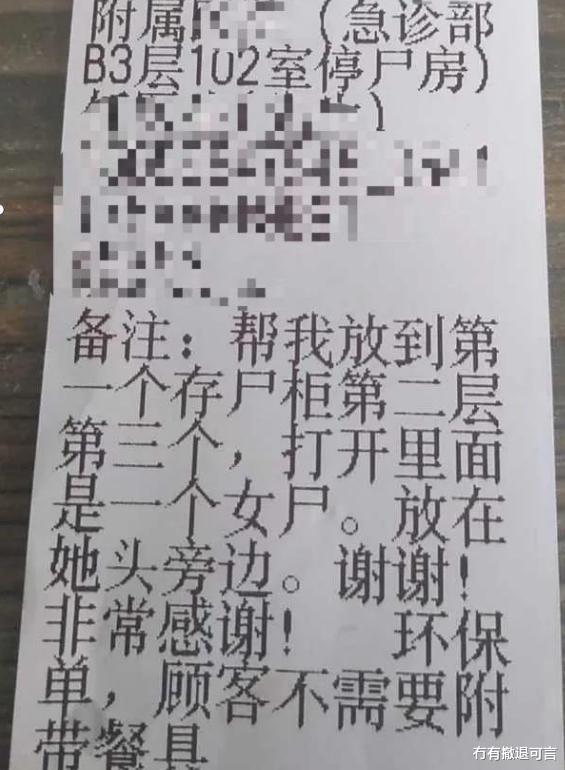 附属医 （急诊部
B3层102室停尸房）
备注：帮我放到第
一个存尸柜第二层
第三个，打开里面
是一个女尸。放在
她头旁边。谢谢！
非常感谢！ 环保
单，顾客不需要附
带餐具
冇有撤退可言